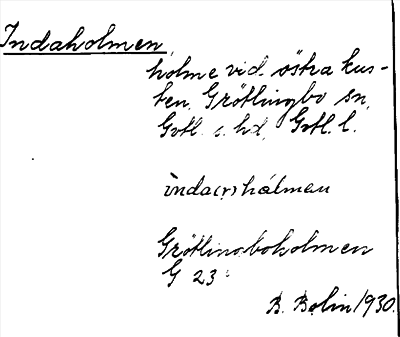 Indaholmen
holme vid östra kus-
ten, Grötlingbo sn,
Gotl. s. hd, Gotl. l.
ìnda(r)hálmen
Grötlingboholmen
G 23
B. Bolin 1930.